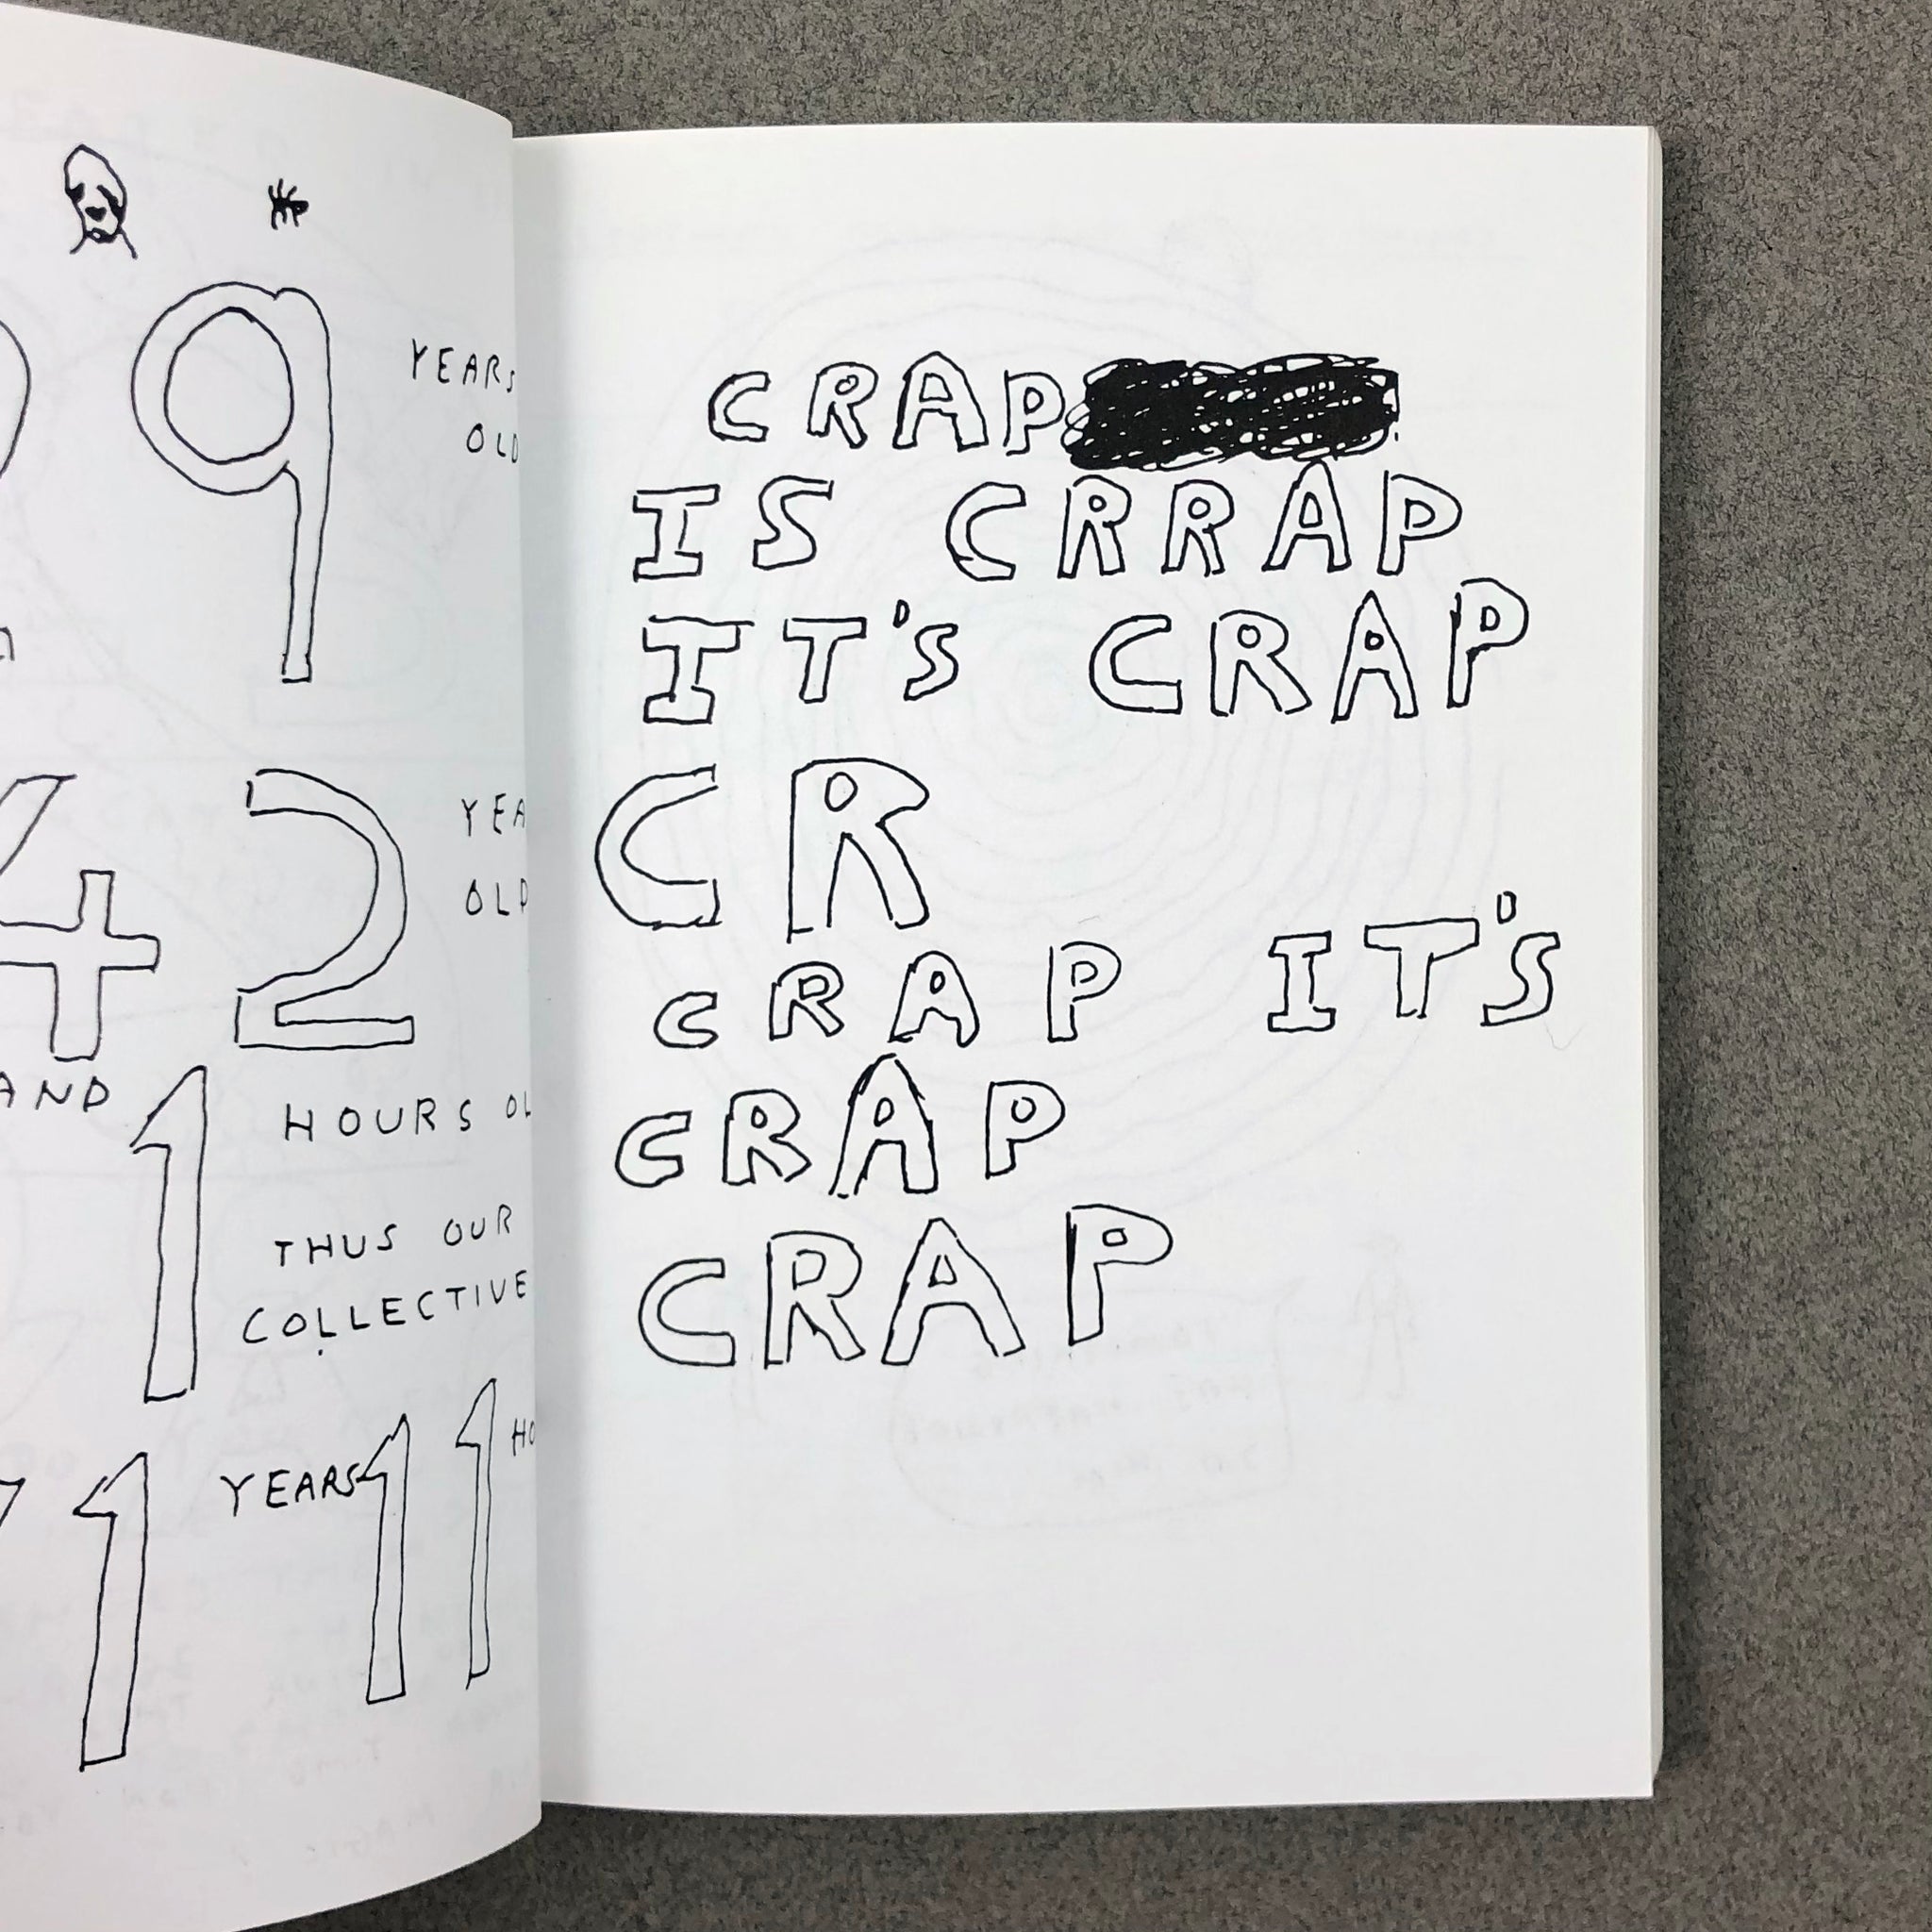 9 YEARS
OLD
42 YEA
OLD
AND 1 HOURS OL
THUS OUR
COLLECTIVE
1 YEARS 11 HO
CRAP
IS CRRAP
IT'S CRAP
CR
CRAP IT'S
CRAP
CRAP